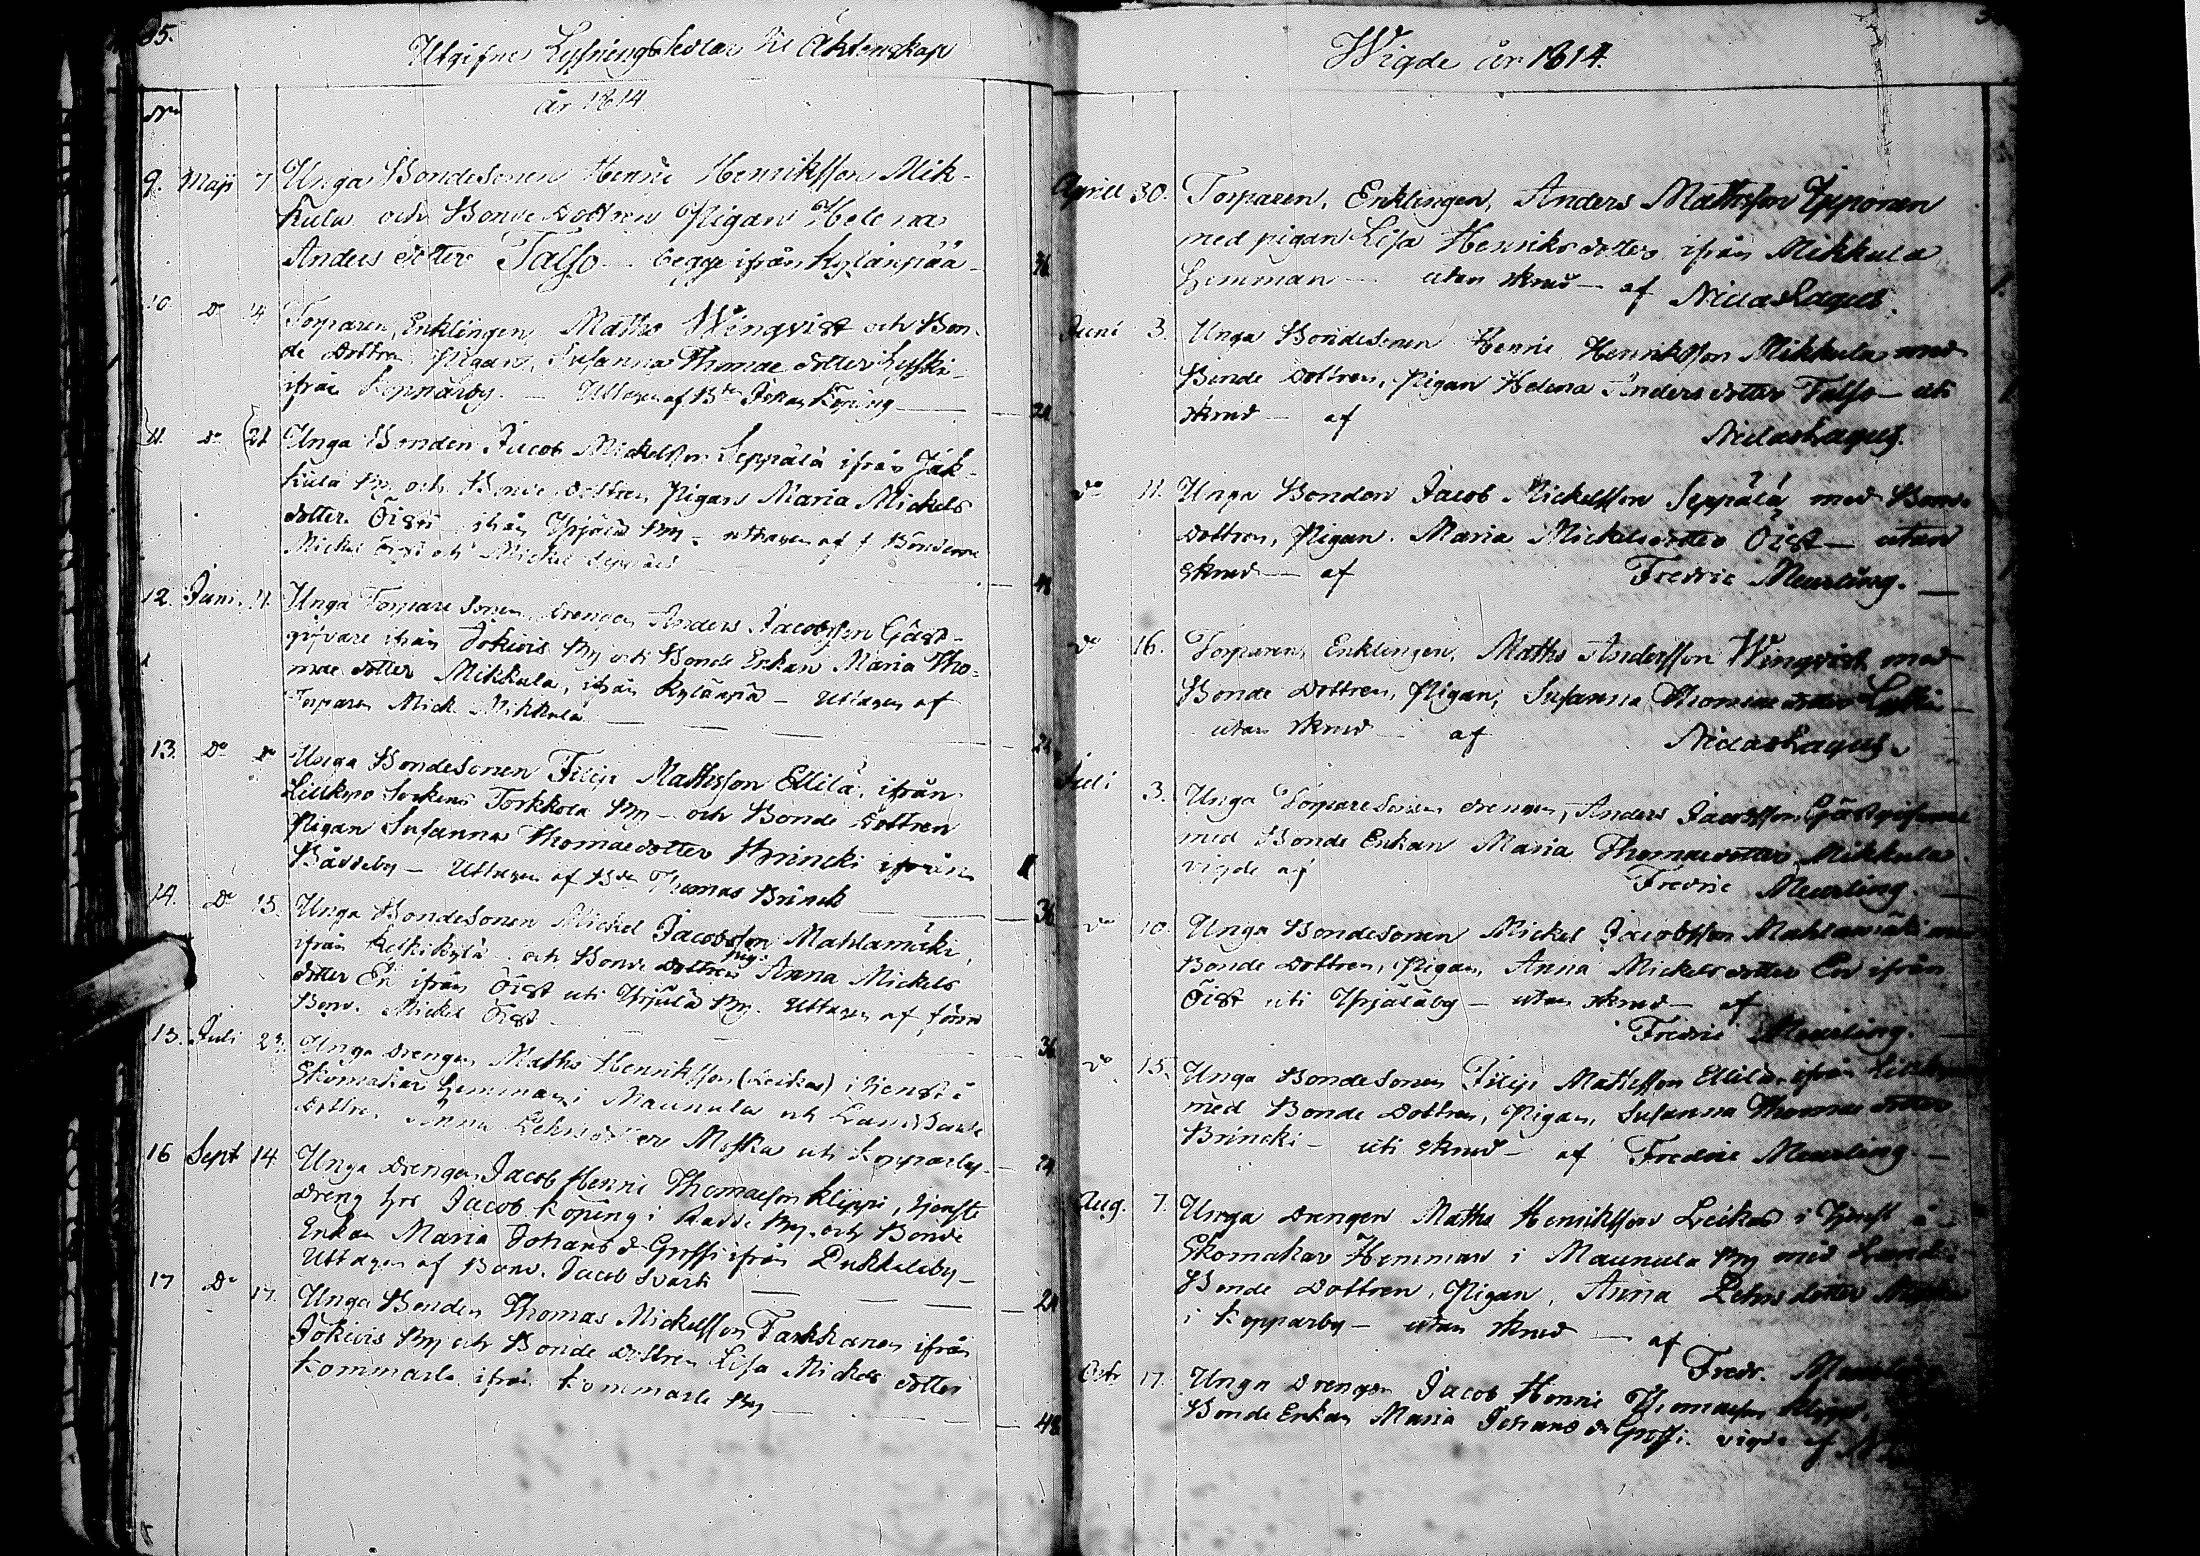 35.
Utgifne Lysnings Sedlar til Äktenskap
år 1814.
No
9. Maji 7 Unga Bondesonen Henric Henriksson Mik-
kula och Bonde dottren Pigan Helena
Anders dotter Talso begge ifrån Kylänpää
10. Do 14 Torparen, Enklingen, Matths Winqvist och Bon-
de dottren, Pigan, Susanna Thomae dotter Lyski
ifrån Kopparby. — Uttagen af Bdn Johan Köping — 24
11. Do 21 Unga Bonden Jacob Mickelsson Seppälä ifrån Jak-
kula By och Bonde dottren Pigan Maria Mickels
dotter Öist ifrån By — uttagen af Bönderne
Mickel Öist och Mickel Seppälä 48
12. Juni 11. Unga Torpare Sonen drengen Anders Jacobsson Gäst-
gifvare ifrån Jokivis By och Bonde Enkan Maria Tho-
mae dotter Mikkula, ifrån Kylänpä — Uttagen af
Torparen Mick. Mikkula — 24
13. Do Do Unga Bondesonen Filip Mathsson Ellilä, ifrån
Lillkyro Sockens Torkkola By — och Bonde dottren
Pigan Susanna Thomaedotter Brincki ifrån
Båddeby — Uttagen af Bdn Thomas Brinck — 36
14. Do 15. Unga Bondesonen Mickel Jacobsson Mahlamäki,
ifrån och Bonde dottren Pig. Anna Mickels
dotter En ifrån Öist uti By. Uttagen af förre
Bond. Mickel Öist — 36
15. Juli 23. Unga drengen Maths Henriksson (Leikas) i tienst å
Skomakar Hemman i Maunula och Landbonde
dottren Anna Lehnsdotter Moska uti Kopparby — 24
16 Sept 14 Unga drengen Jacob Henric Thomaeson Klippi, tjenste
dreng hos Jacob Köping i By och Bonde
Enkan Maria Johans dr Grossi ifrån Pukkilaby —
Uttagen af Bond. Jacob Svart — 24
17 Do 17. Unga Bonden Thomas Mickelsson Tarkkanen ifrån
Jokivis By och Bonde dottren Lisa Mickels dotter
Kommarla ifrån Kommarla By — 48
Wigde år 1814.
Aprill 30. Torparen, Enklingen, Anders Mathsson Ypponen
med pigan Lisa Henriksdotter ifrån Mikkula
Hemman — utan skrud — af Niclas Lagus.
Juni 3. Unga Bondesonen Henric Henriksson Mikkula med
Bonde dottren, Pigan Helena Andersdotter Talso — uti
skrud — af
Niclas Lagus.
Do 11. Unga Bonden Jacob Mickelsson Seppälä med Bonde
dottren, Pigan. Maria Mickelsdotter Öist — utan
skrud — af Fredric Meurling. —
Do 16. Torparen, Enklingen, Maths Andersson Winqvist med
Bonde dottren, Pigan, Susanna Thomae dotter Lyski —
utan skrud — af Niclas Lagus.
Juli 3. Unga Torpare Sonen drengen, Anders Jacobsson Gästgifvare
med Bonde Enkan Maria Thomaedotter Mikkula.
vigde af Fredric Meurling. —
Do 10. Unga Bondesonen Mickel Jacobsson Mahlamäki med
Bonde dottren, Pigan, Anna Mickelsdotter En ifrån
Öist uti — utan skrud — af
Fredric Meurling.
Do 15. Unga Bondesonen Filip Mathsson Ellilä, ifrån Lillkyro
med Bonde dottren, Pigan, Susanna Thomae dotter
Brincki — uti skrud — af Fredric Meurling —
Aug. 7. Unga drengen Maths Henriksson Leikas i tjenst å
Skomakar Hemman i Maunula By med Land-
Bonde dottren, Pigan, Anna Lehnsdotter Moska
i Kopparby — utan skrud — af
Fredr. Meurling
Octr 17. Unga drengen Jacob Henric Thomaeson Klippi,
Bonde Enkan Maria Johans dr Grossi. vigde af